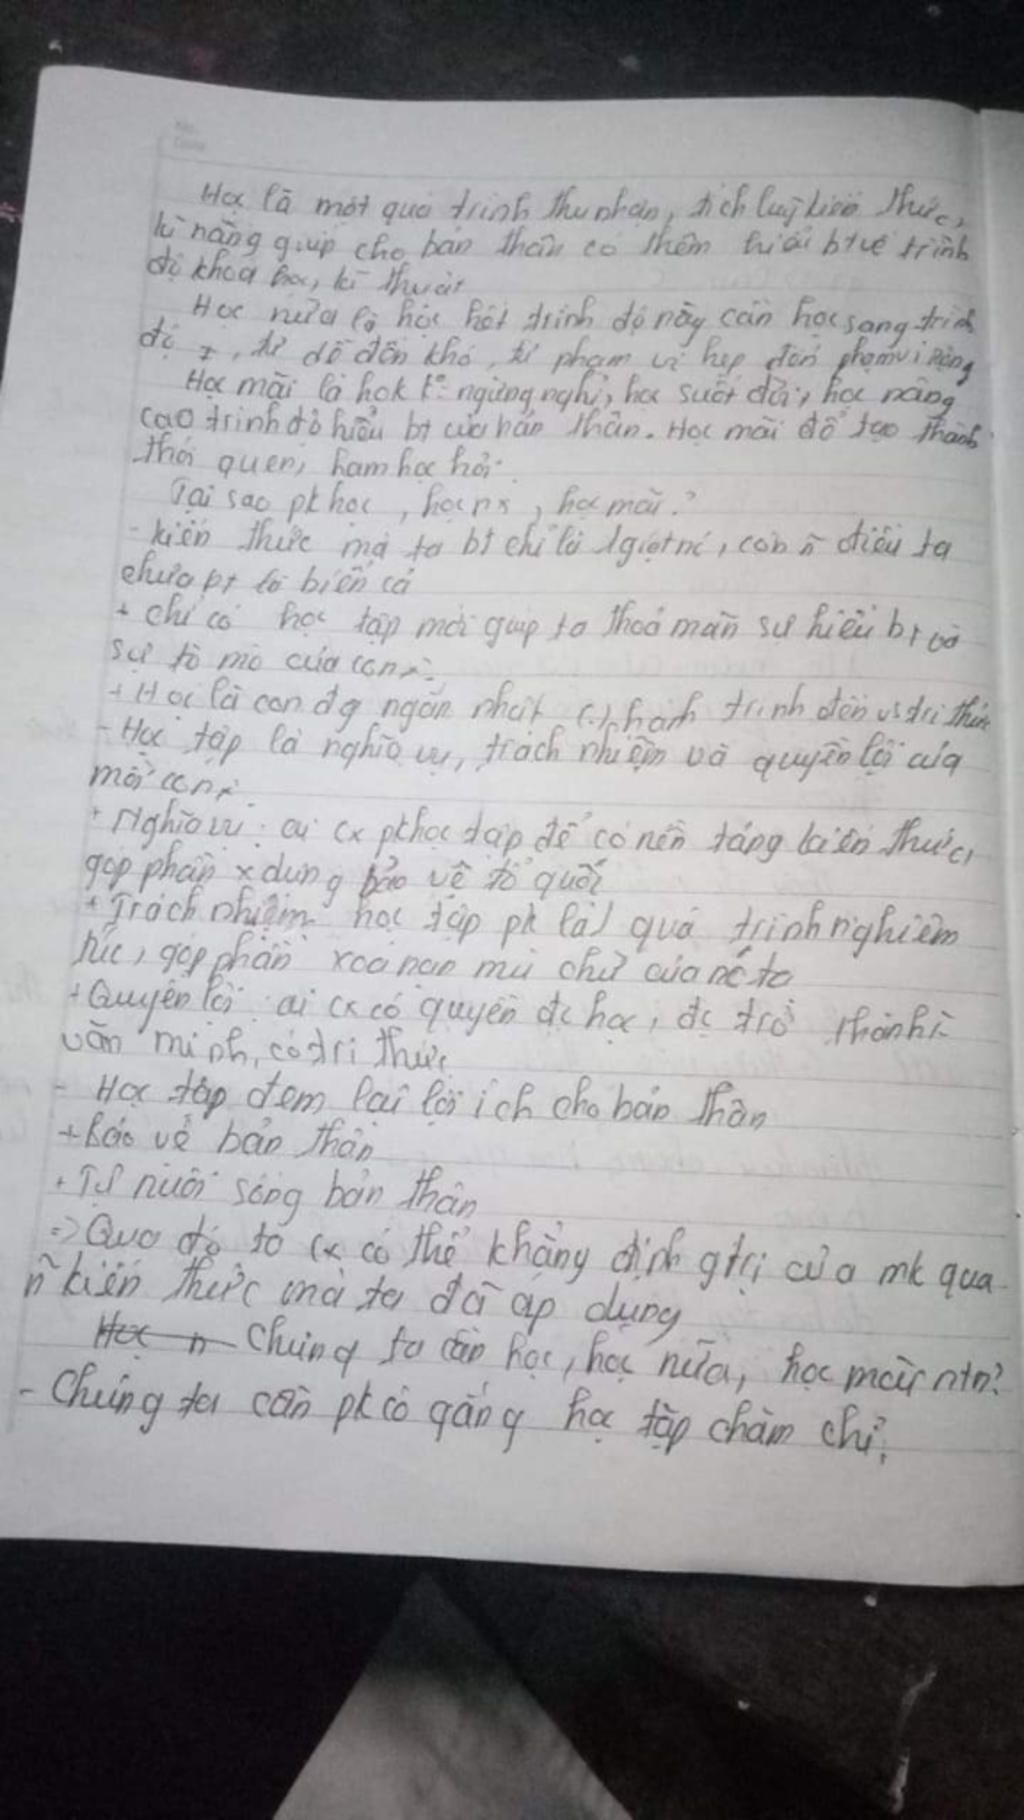 Học là một quá trình thu nhận, tích luỹ kiến thức,
kĩ năng giúp cho bản thân có thêm hiểu bt về trình
độ khoa học, kĩ thuật
Học nữa là học hết trình độ này cần học sang trình
độ, từ dễ đến khó, từ phạm vi hẹp đến phạm vi rộng
Học mãi là hok k° ngừng nghỉ, học suốt đời, học nâng
cao trình độ hiểu bt của bản thân. Học mãi để tạo thành
thói quen, ham học hỏi.
Tại sao pk học, học ns, học mãi?
- kiến thức mà ta bt chỉ là 1 giọt nc, còn n~ điều ta
chưa bt là biển cả
+ chỉ có học tập mới giúp ta thoả mãn sự hiểu bt và
sự tò mò của con
+ Học là con đg ngắn nhất (.) hành trình đến vs tri thức
- Học tập là nghĩa vụ, trách nhiệm và quyền lợi của
mỗi con
+ Nghĩa vụ: ai cx pk học tập để có nền tảng kiến thức,
góp phần x dựng bảo vệ tổ quốc
+ Trách nhiệm học tập pk là 1 quá trình nghiêm
túc, góp phần xoá nạn mù chữ của nc ta
+ Quyền lợi: ai cx có quyền đc học, đc trở thành
văn minh, có tri thức
- Học tập đem lại lợi ích cho bản thân
+ Bảo vệ bản thân
+ Tự nuôi sống bản thân
=> Qua đó ta cx có thể khẳng định gtrị của mk qua
n~ kiến thức mà ta đã áp dụng
Học n Chúng ta cần học, học nữa, học mãi ntn?
- Chúng ta cần pk cố gắng học tập chăm chỉ,